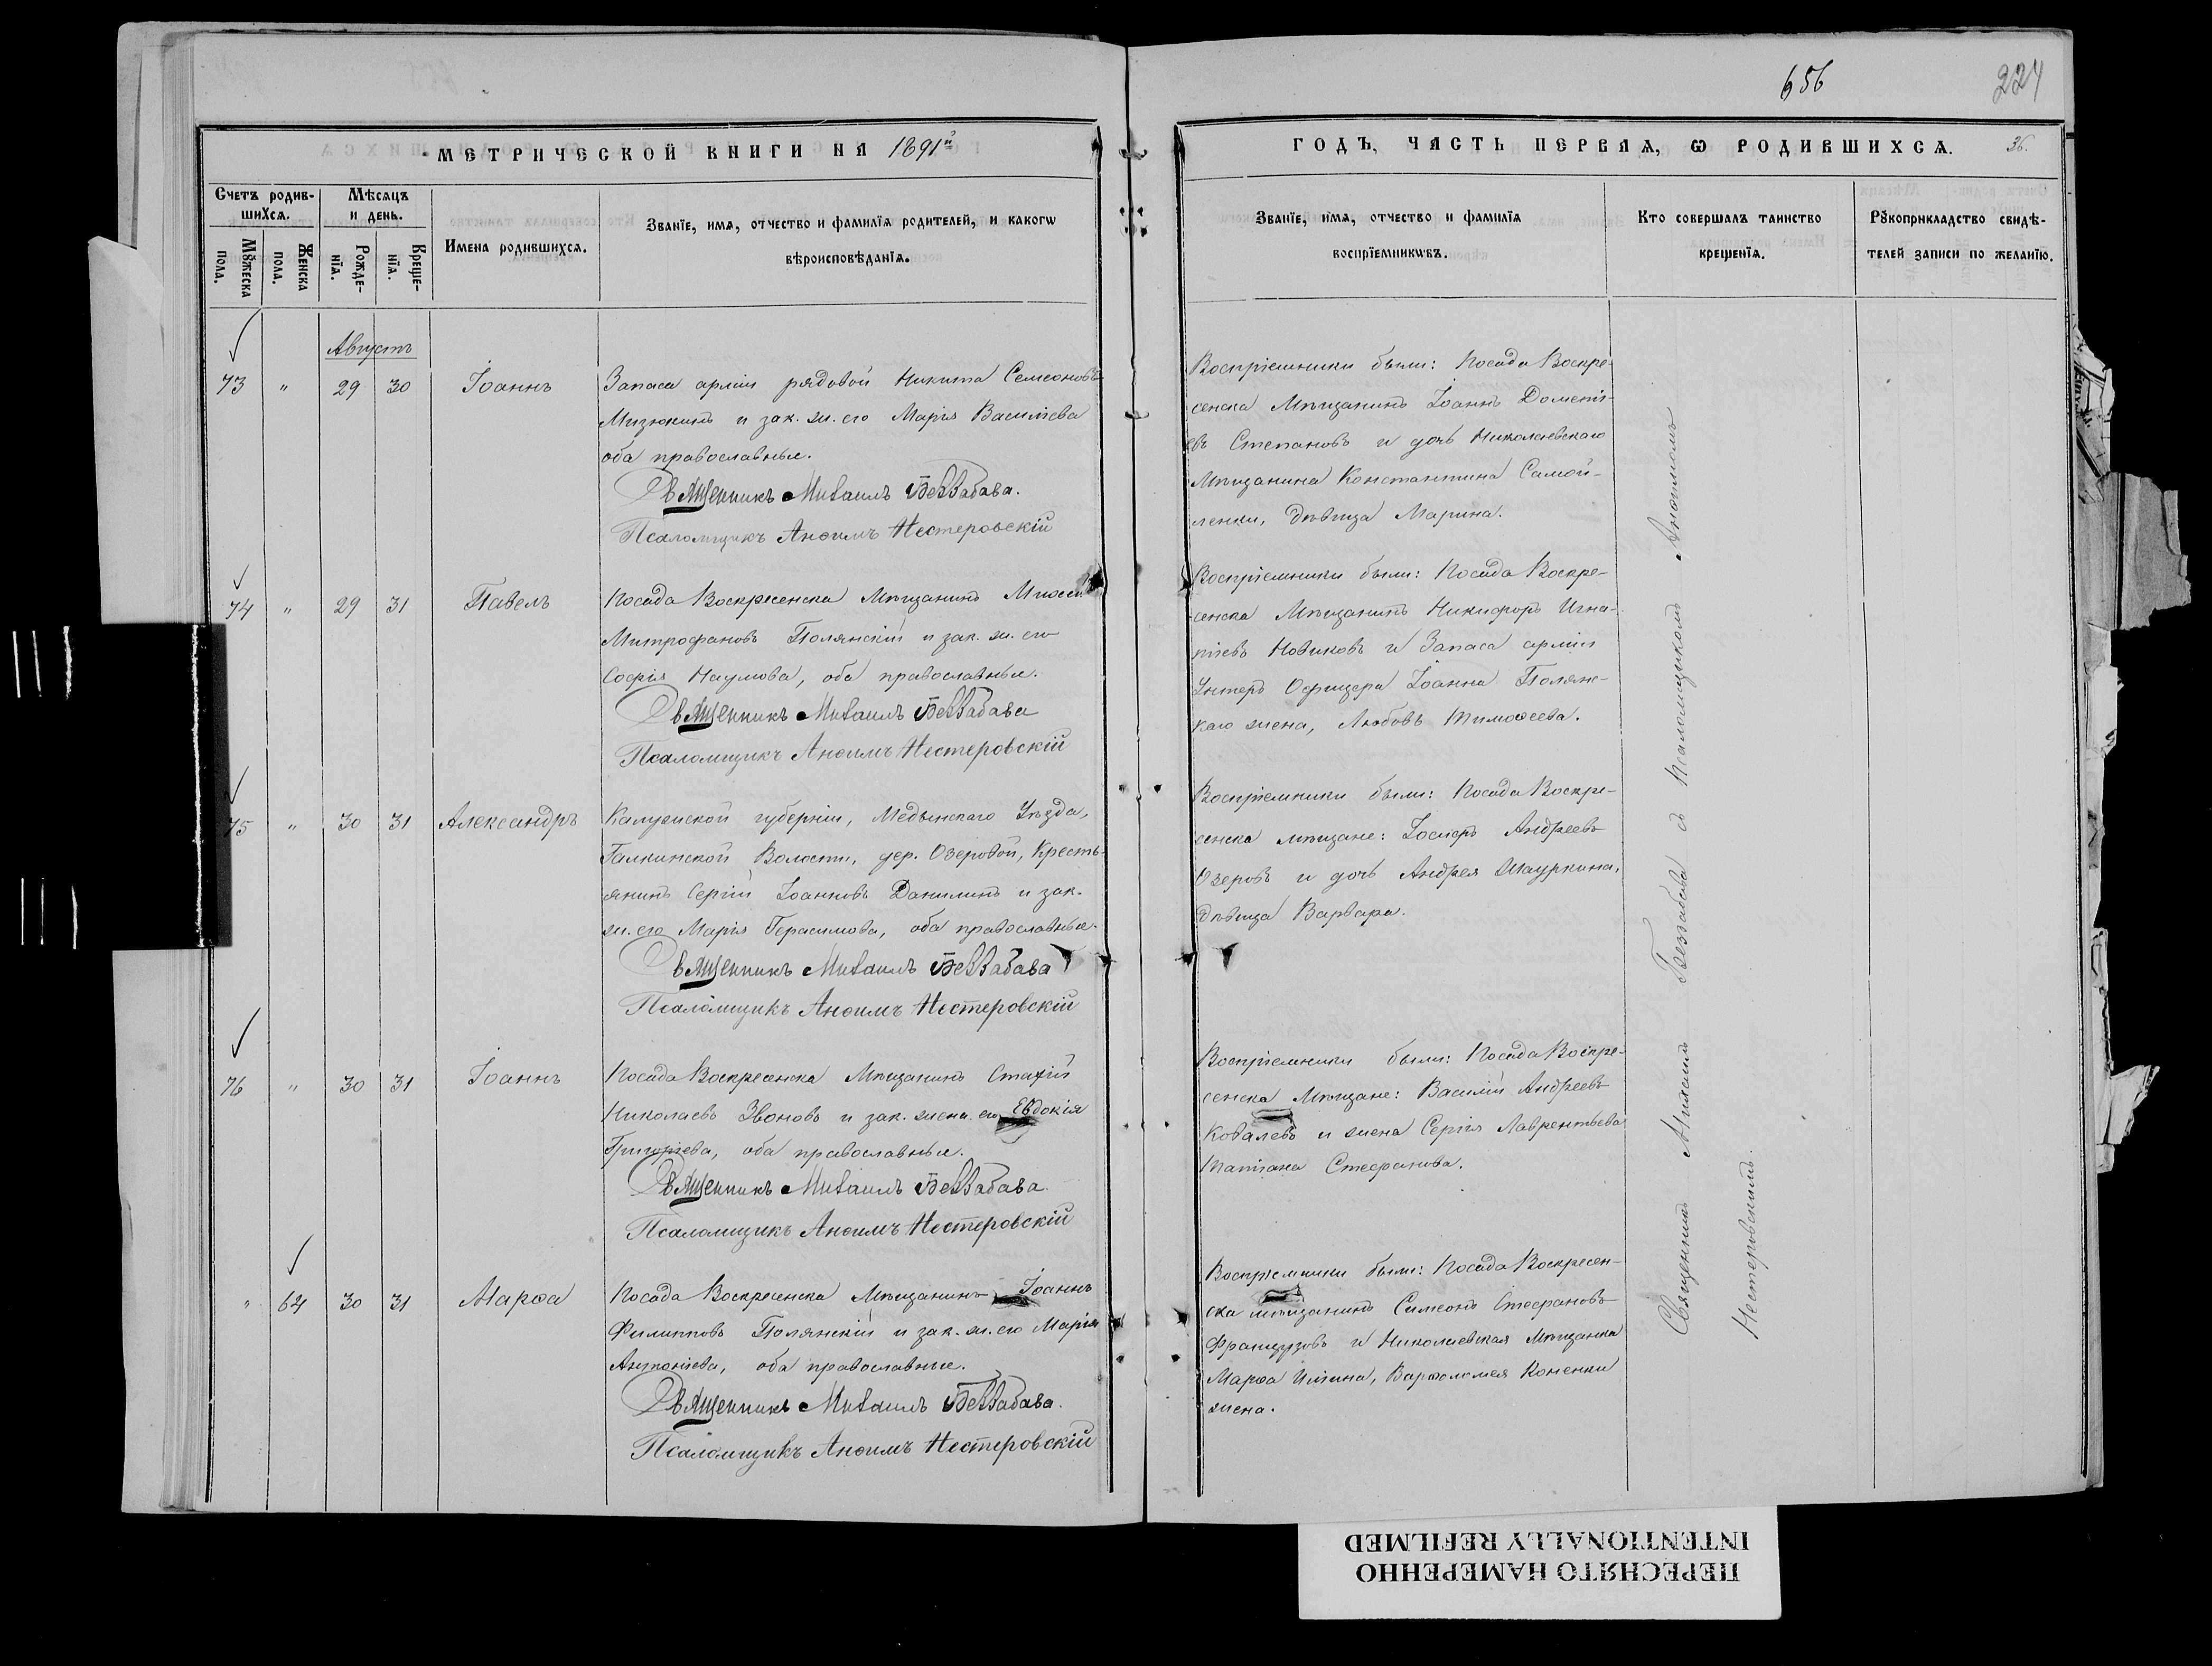 656
224
МЕТРИЧЕСКОЙ КНИГИ НА 1891й
ГОДЪ, ЧАСТЬ ПЕРВАѦ, Ѡ РОДИВШИХСѦ.
36.
Счетъ родив-
шихсѧ.
Мꙋжеска
пола.
Женска
пола.
Мѣсѧцъ
и день.
Рожде-
нїѧ.
Креще-
нїѧ.
Имена родившихсѧ.
Званїе, имѧ, отчество и фамилїѧ родителей, и какогѡ
вѣроисповѣданїѧ.
Званїе, имѧ, отчество и фамилїѧ
воспрїемникѡвъ.
Кто совершалъ таинство
крещенїѧ.
Рꙋкоприкладство свидѣ-
телей записи по желанїю.
Августъ
73 " 29 30 Іоаннъ
Запаса арміи рядовой Никита Семеоновъ
Мизюкинъ и зак. ж. его Марія Василіева
оба православные.
Священникъ Михаилъ Беззабава.
Псаломщикъ Анѳимъ Нестеровскій
Воспріемники были: Посада Воскре-
сенска Мѣщанинъ Іоаннъ Дометі-
евъ Степановъ и дочь Николаевскаго
Мѣщанина Константина Самой-
ленки, дѣвица Марина.
74 " 29 31 Павелъ
Посада Воскресенска Мѣщанинъ Моѵсей
Митрофановъ Полянскій и зак. ж. его
Софія Наумова, оба православные.
Священникъ Михаилъ Беззабава
Псаломщикъ Анѳимъ Нестеровскій
Воспріемники были: Посада Воскре-
сенска Мѣщанинъ Никифоръ Игна-
тіевъ Новиковъ и Запаса арміи
Унтеръ Офицера Іоанна Полянс-
каго жена, Любовь Тимоѳеева.
75 " 30 31 Александръ
Калужской губерніи, Медынскаго Уѣзда,
Галкинской Волости, дер. Озеровой, Кресть-
янинъ Сергій Іоанновъ Данилинъ и зак.
ж. его Марія Герасимова, оба православные.
Священникъ Михаилъ Беззабава
Псаломщикъ Анѳимъ Нестеровскій
Воспріемники были: Посада Воскре-
сенска мѣщане: Іосифъ Андреевъ
Озеровъ и дочь Андрея Шкуркина,
дѣвица Варвара.
76 " 30 31 Іоаннъ
Посада Воскресенска Мѣщанинъ Стахій
Николаевъ Звоновъ и зак. жена его Евдокія
Григоріева, оба православные.
Священникъ Михаилъ Беззабава.
Псаломщикъ Анѳимъ Нестеровскій
Воспріемники были: Посада Воскре-
сенска Мѣщане: Василій Андреевъ
Ковалевъ и жена Сергія Лаврентьева
Татіана Стефанова.
" 64 30 31 Марѳа
Посада Воскресенска Мѣщанинъ Іоаннъ
Филипповъ Полянскій и зак. ж. его Марія
Антоніева, оба православные.
Священникъ Михаилъ Беззабава.
Псаломщикъ Анѳимъ Нестеровскій
Воспріемники были: Посада Воскресен-
ска мѣщанинъ Симеонъ Стефановъ
Французовъ и Николаевская Мѣщанка
Марѳа Иліина, Варѳоломея Коненки
жена.
Священникъ Михаилъ Беззабава съ псаломщикомъ Анѳимомъ
Нестеровскимъ.
ПЕРЕСНЯТО НАМЕРЕННО
INTENTIONALLY REFILMED